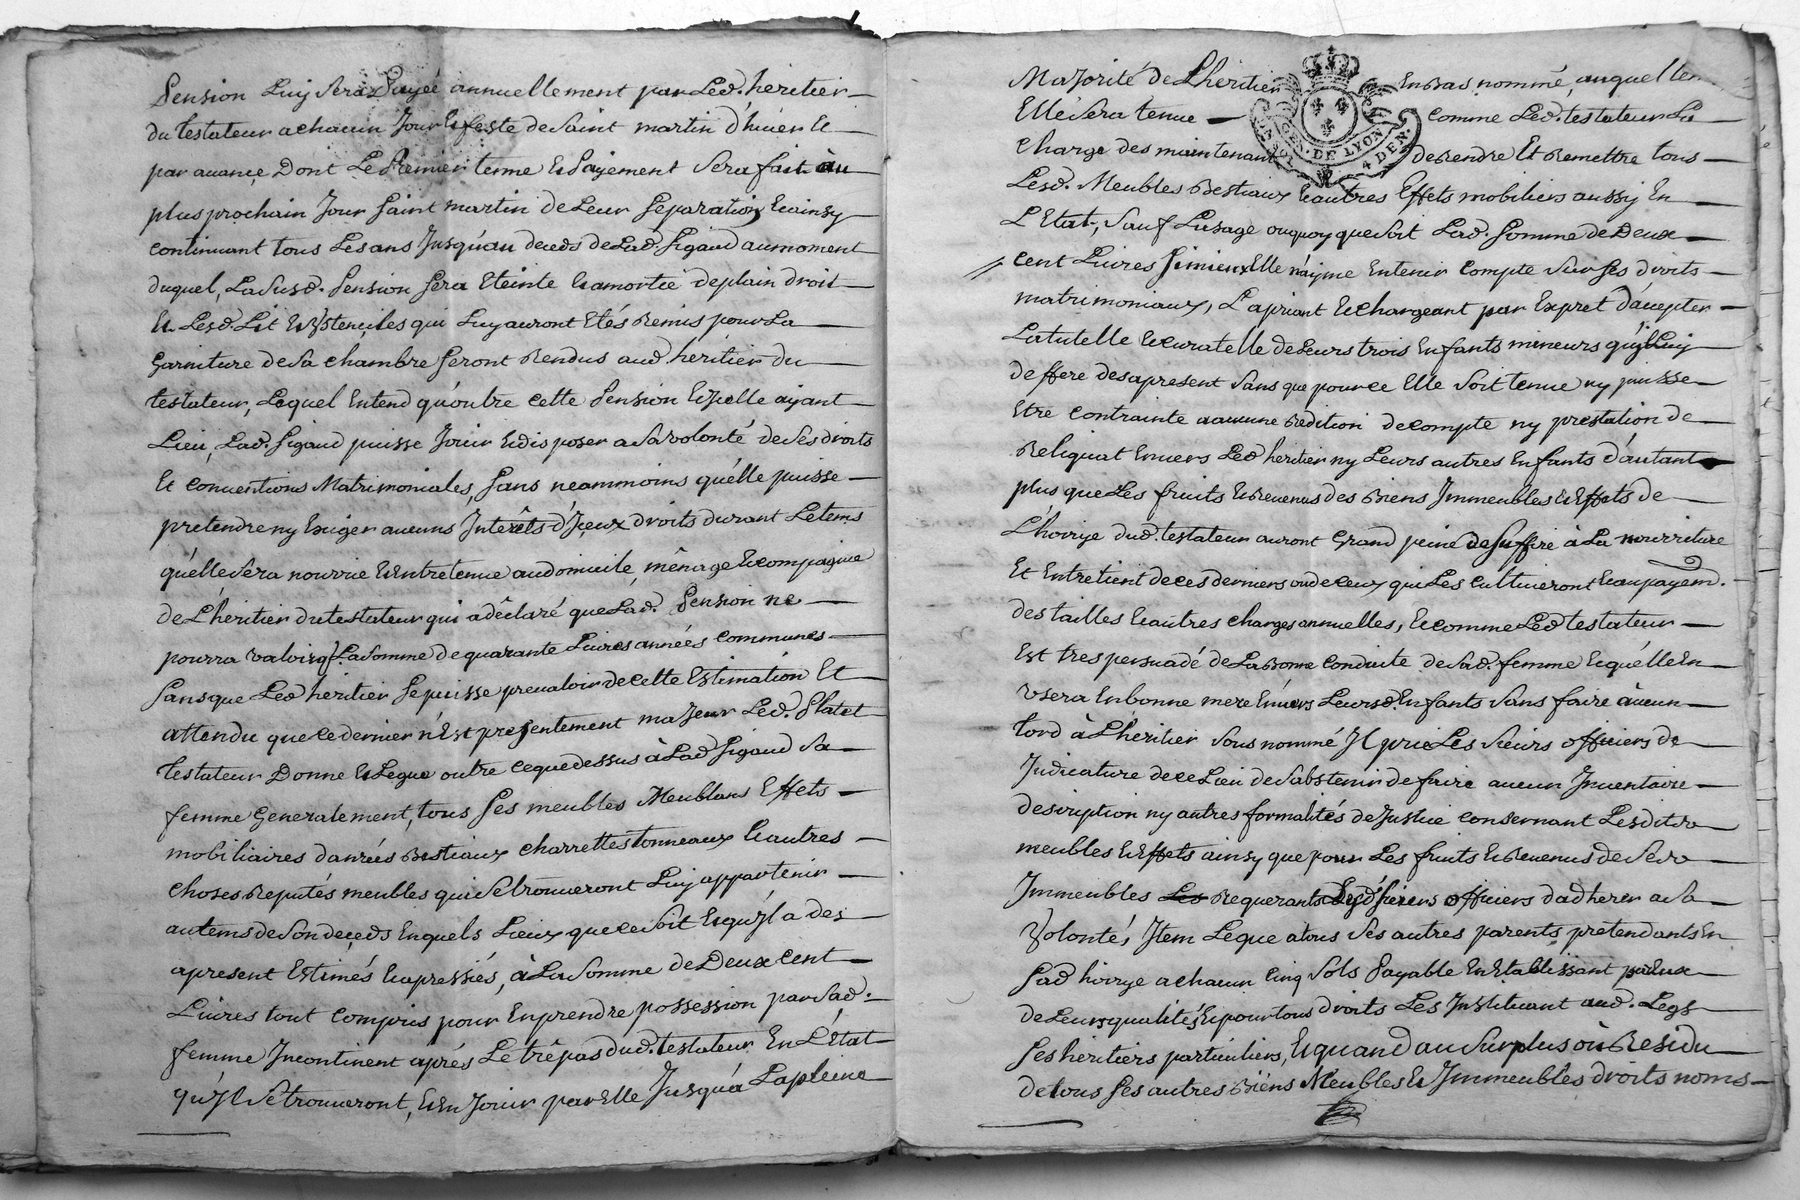 Pension Luij Sera Payée annuellement par Led. heritier
du testateur a chacun Jour & feste de Saint martin d'hiver &
par avance Dont Le Premier terme & Payement Sera fait au
plus prochain Jour Saint martin de Leur Separation & ainsy
continuant tous Les ans Jusqu'au deceds de Lad. Sigaud au moment
duquel, La Susd. Pension Sera Eteinte & amortie de plain droit
& Lesd. Lit & Ustenciles qui Luy auront Etés Remis pour La
Garniture de Sa chambre Seront Rendus aud heritier du
testateur, Lequel Entend qu'outre cette Pension & Icelle aijant
Lieu, Lad. Sigaud puisse Jouir & disposer a Sa volonté de Ses droits
& conventions Matrimoniales, Sans neammoins qu'elle puisse
pretendre ny Exiger aucuns Interêts d'Iceux droits durant Le tems
qu'elle Sera nourrie & Entretenue au domicile, mênage & compagnie
de L'heritier du testateur qui a dêclaré que Lad. Pension ne
pourra valoir q. La Somme de quarante Livres années communes
Sans que Led heritier Se puisse prevaloir de cette Estimation Et
attendu que ce dernier n'Est presentement majeur Led. Platet
testateur Donne & Legue outre ce que dessus à Lad Sigaud Sa
femme Generalement, tous Ses meubles Meublans Effets
mobiliaires danrées Bestiaux charrettes tonneaux & autres
choses Reputés meubles qui Se trouveront Luy appartenir
au tems de Son deçeds En quels Lieux que ce Soit & qu'Jl a des
apresent Estimés & apressiés, à La Somme de Deux cent
Livres tout compris pour En prendre possession par Sad.
femme Jncontinent aprés Le trêpas dud. testateur En L'Etat
qu'Jl Se trouveront, & En Jouir par Elle Jusqu'a La pleine
Majorité de L'heritier En Bas nommé, auquel tem
GEN. DE LYON 4 DEN.
Elle Sera tenue comme Led. testateur La
Charge des maintenant de Rendre Et Remettre tous
Lesd. Meubles Bestiaux & autres Effets mobiliers aussy En
L'Etat, Sauf L'usage ou quoy que Soit Lad. Somme de Deux
cent Livres Si mieux Elle n'ayme En tenir compte Sur Ses droits
matrimoniaux, La priant & chargeant par Expret d'accepter
La tutelle & curatelle de Leurs trois Enfants mineurs qu'jl Luy
deffere des apresent Sans que pour ce Elle Soit tenue ny puisse
Etre contrainte a aucune Redition de compte ny prestation de
Reliquat Envers Led heritier ny Leurs autres Enfants d'autant
plus que Les fruits & Revenus des Biens Jmmeubles & Effets de
L'hoirye dud. testateur auront Grand peine de Suffire à La nourriture
Et Entretient de ces derniers ou de ceux qui Les Cultiveront & au payem.
des tailles & autres charges annuelles, & comme Led testateur
Est tres persuadé de La Bonne conduite de Sad. femme & qu'elle En
Usera En bonne mere Envers Leursd. Enfants Sans faire àucun
tord à L'heritier Sous nommé Jl prie Les Sieurs officiers de
Judicature de ce Lieu de S'abstenir de faire aucun Jnventaire
description ny autres formalités de Justice consernant Lesdits
meubles & Effets ainsy que pour Les fruits & Revenus de Ses
Jmmeubles Requerants Lesd. Sieurs officiers d'adherer a Sa
Volonté, Jtem Legue a tous Ses autres parents pretendants En
Sad hoirye a chacun Cinq Sols Payable En Etablissant par Eux
de Leurs qualités, & pour tous droits Les Jnstituant aud. Legs
Ses héritiers particuliers, & quand au Surplus où Residu
de tous Ses autres Biens Meubles & Jmmeubles droits noms